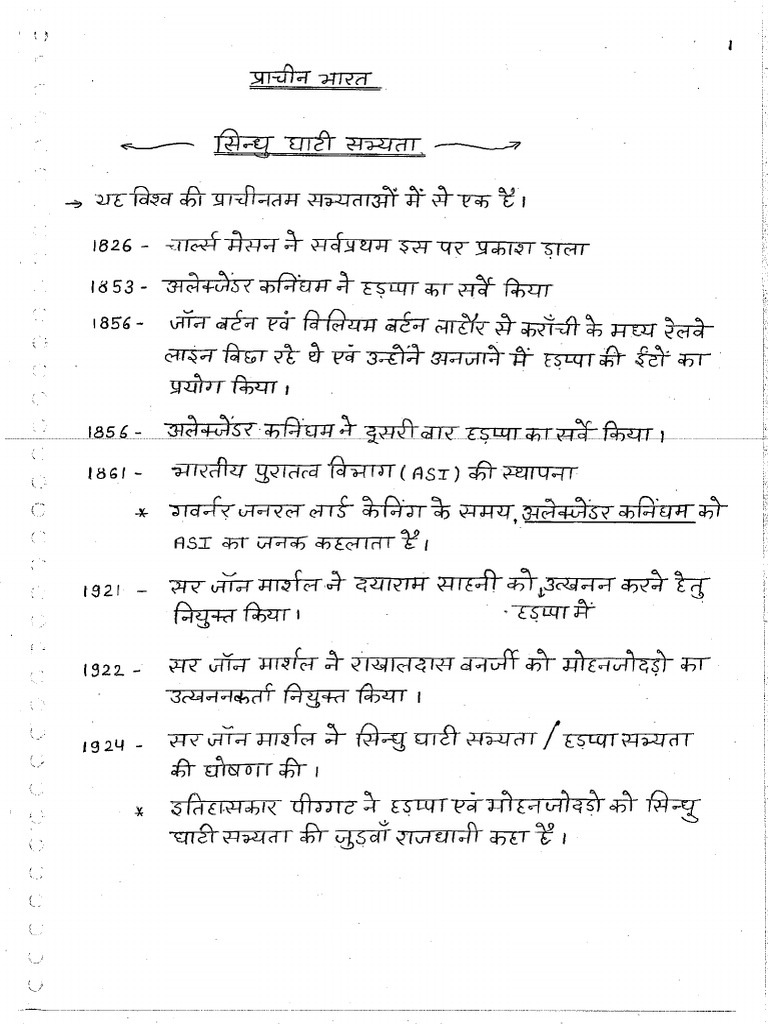 1
प्राचीन भारत
सिन्धु घाटी सभ्यता
→ यह विश्व की प्राचीनतम सभ्यताओं में से एक है।
1826 - चार्ल्स मेसन ने सर्वप्रथम इस पर प्रकाश ड़ाला
1853 - अलेक्जेंडर कनिंघम ने हड़प्पा का सर्वे किया
1856 - जॉन बर्टन एवं विलियम बर्टन लाहौर से कराँची के मध्य रेलवे
लाइन बिछा रहे थे एवं उन्होंने अनजाने में हड़प्पा की ईंटों का
प्रयोग किया।
1856 - अलेक्जेंडर कनिंघम ने दूसरी बार हड़प्पा का सर्वे किया।
1861 - भारतीय पुरातत्व विभाग (ASI) की स्थापना
* गवर्नर जनरल लार्ड केनिंग के समय, अलेक्जेंडर कनिंघम को
ASI का जनक कहलाता है।
1921 - सर जॉन मार्शल ने दयाराम साहनी को, उत्खनन करने हेतु
हड़प्पा में
नियुक्त किया।
1922 - सर जॉन मार्शल ने राखालदास बनर्जी को मोहनजोदड़ो का
उत्खननकर्ता नियुक्त किया।
1924 - सर जॉन मार्शल ने सिन्धु घाटी सभ्यता / हड़प्पा सभ्यता
की घोषणा की।
* इतिहासकार पीग्गट ने हड़प्पा एवं मोहनजोदड़ो को सिन्धु
घाटी सभ्यता की जुड़वाँ राजधानी कहा है।